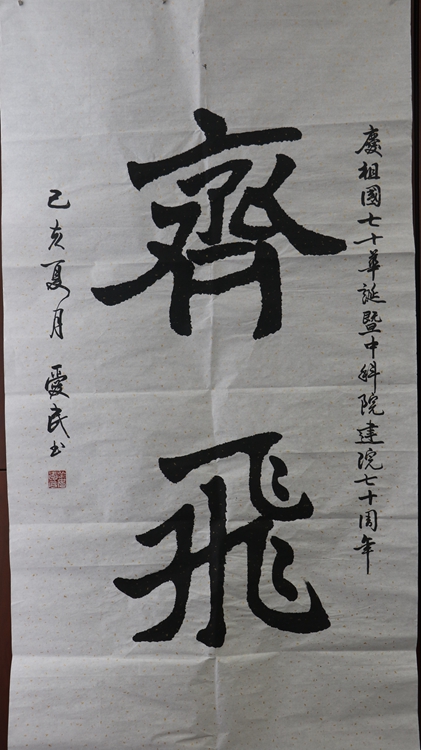 慶祖國七十華誕暨中科院建院七十周年
齊飛
己亥夏月 愛民书